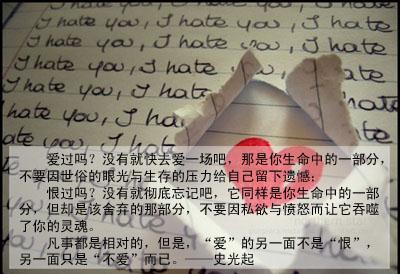 I hate you, I hate you, I hate
you, I hate you, I hate you, I hate
I hate you, I hate
you, I hate
I hate you, I hate
hate you, I hate
爱过吗?没有就快去爱一场吧,那是你生命中的一部分,
不要因世俗的眼光与生存的压力给自己留下遗憾;
恨过吗?没有就彻底忘记吧,它同样是你生命中的一部
分,但却是该舍弃的那部分,不要因私欲与愤怒而让它吞噬
了你的灵魂。
凡事都是相对的,但是,“爱”的另一面不是“恨”,
另一面只是“不爱”而已。——史光起